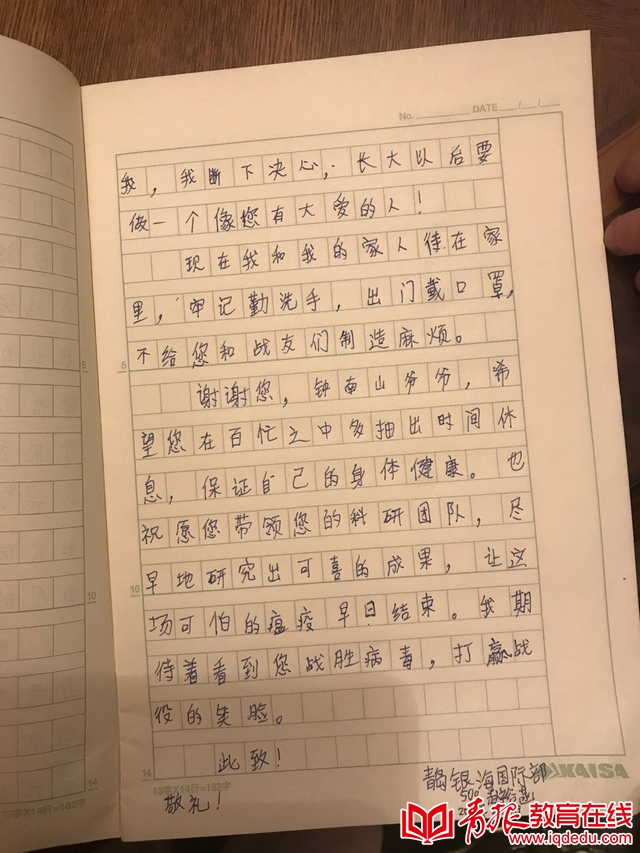 No. DATE / /
我，我断下决心，长大以后要
做一个像您有大爱的人！
现在我和我的家人待在家
里，牢记勤洗手，出门戴口罩，
不给您和战友们制造麻烦。
5
谢谢您，钟南山爷爷，希
望您在百忙之中多抽出时间休
息，保证自己的身体健康。也
祝愿您带领您的科研团队，尽
早地研究出可喜的成果，让这
10
场可怕的瘟疫早日结束。我期
待着看到您战胜病毒，打赢战
役的笑脸。
此致！
14
敬礼！
13字X14行=182字
KAISA
银海国际部
5
10
14
13字X14行=182字
青报教育在线
www.iqdedu.com